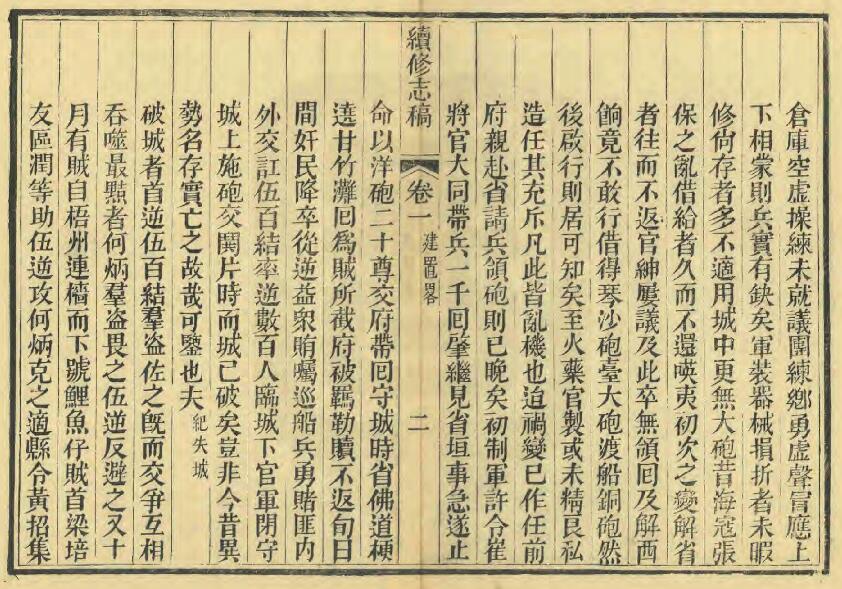 倉庫空虛操練未就議團練鄉勇虛聲冒應上
下相蒙則兵實有缺矣軍裝器械損折者未暇
修尙存者多不適用城中更無大砲昔海寇張
保之亂借給者久而不還𠸄夷初次之變解省
者往而不返官紳屢議及此卒無領囘及解西
餉竟不敢行借得琴沙砲臺大砲渡船銅砲然
後啟行則居可知矣至火藥官製或未精良私
造任其充斥凡此皆亂機也迨禍變已作任前
府親赴省請兵領砲則已晚矣初制軍許令崔
將官大同帶兵一千囘肇繼見省垣事急遂止
續修志稿 卷一 建置畧 二
命以洋砲二十尊交府帶囘守城時省佛道梗
遶甘竹灘囘爲賊所截府被羈勒贖不返旬日
間奸民降卒從逆益衆賄囑巡船兵勇賭匪內
外交訌伍百結率逆數百人臨城下官軍閉守
城上施砲交閧片時而城已破矣豈非今昔異
勢名存實亡之故哉可鑒也夫 紀失城
破城者首逆伍百結羣盗佐之旣而交爭互相
吞噬最黠者何炳羣盗畏之伍逆反避之又十
月有賊自梧州連檣而下號鯉魚仔賊首梁培
友區潤等助伍逆攻何炳克之適縣令黃招集